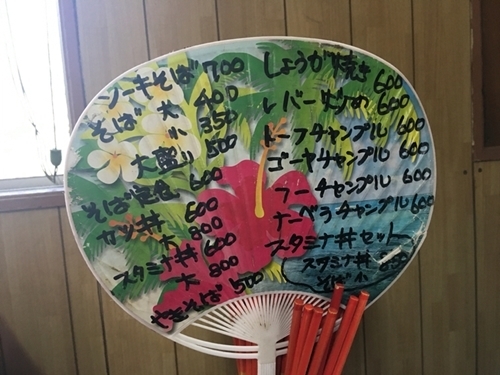 ソーキそば 700
そば 大 400
小 350
大盛り 500
そば定食 600
カツ丼 600
大 800
スタミナ丼 600
大 800
やきそば 500
しょうが焼き 600
レバーいため 600
トーフチャンプル 600
ゴーヤチャンプル 600
フーチャンプル 600
ナーベラチャンプル 600
スタミナ丼セット
スタミナ丼
そば小